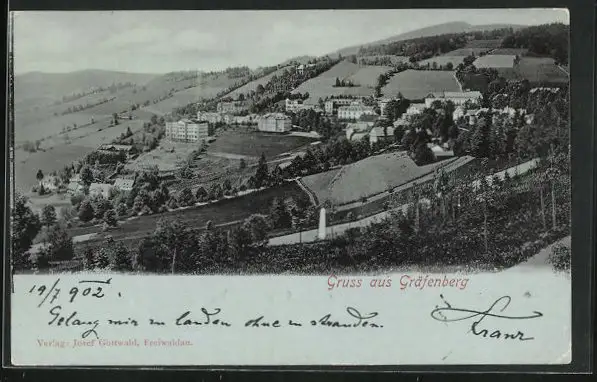 Gruss aus Gräfenberg
19/7 902.
Gelang mir zu landen, ohne zu stranden.
Franz
Verlag: Josef Gottwald, Freiwaldau.